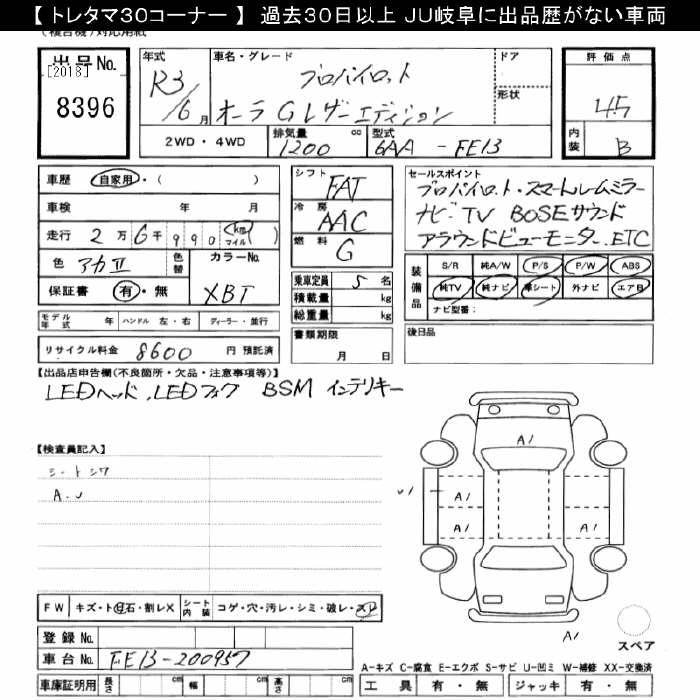 【 トレタマ30コーナー 】 過去30日以上 JU岐阜に出品歴がない車両
出品No.
[2018]
8396
年式
R3/6月
車名・グレード
プロパイロット
オーラ Gレザーエディション
ドア
形状
評価点
4.5
内装
B
2WD・4WD
排気量
1200 cc
型式
6AA-FE13
車歴
自家用・( )
車検 年 月
走行 2万6千990 (km マイル)
色 アカⅡ
色替
カラーNo.
XBT
保証書 有・無
モデル年式 年
ハンドル 左・右
ディーラー・並行
リサイクル料金 8600 円 預託済
シフト
FAT
冷房
AAC
燃料
G
乗車定員 5 名
積載量 kg
総重量 kg
書類期限
月 日
セールスポイント
プロパイロット・スマートルームミラー
ナビ・TV BOSEサウンド
アラウンドビューモニター. ETC
装備品
S/R 純A/W P/S P/W ABS
純TV 純ナビ 革シート 外ナビ エアB
ナビ型番:
後日品
【出品店申告欄(不良箇所・欠品・注意事項等)】
LEDヘッド, LEDフォグ BSM インテリキー
【検査員記入】
シートシワ
A.U
A1
U1
A1
A1
A1
A1
A1
スペア
FW キズ・ト飛石・割レX
シート内装 コゲ・穴・汚レ・シミ・破レ・スレ
登録No.
車台No. FE13-200957
車庫証明用 長さ cm 幅 cm 高さ cm
A-キズ C-腐食 E-エクボ S-サビ U-凹ミ W-補修 XX-交換済
工具 有・無 ジャッキ 有・無